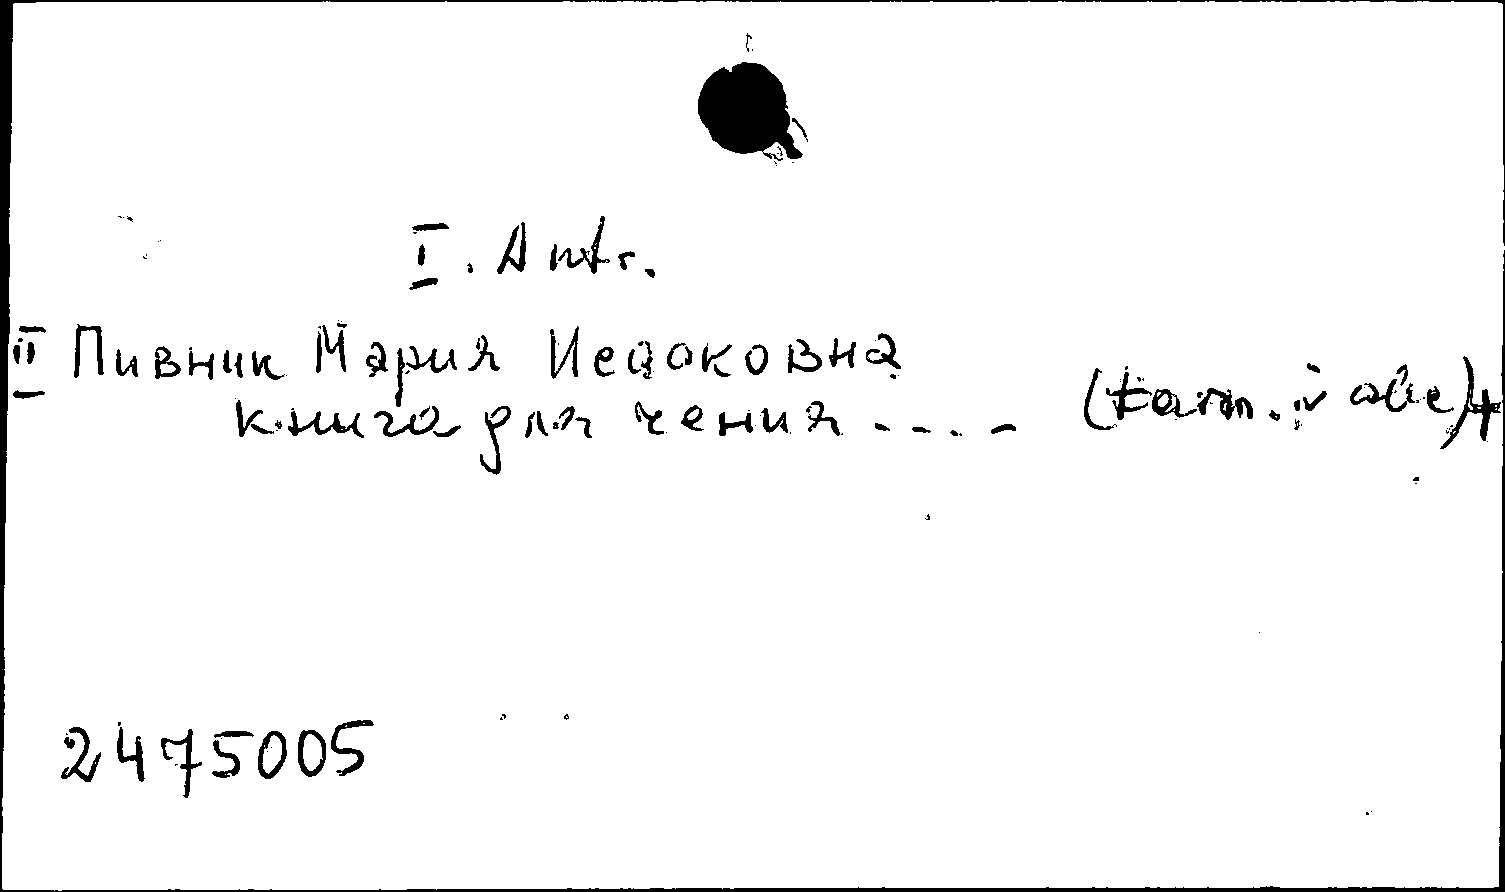 I. Antr.
II Пивник Мария Исааковна
книга для чения ....
2475005